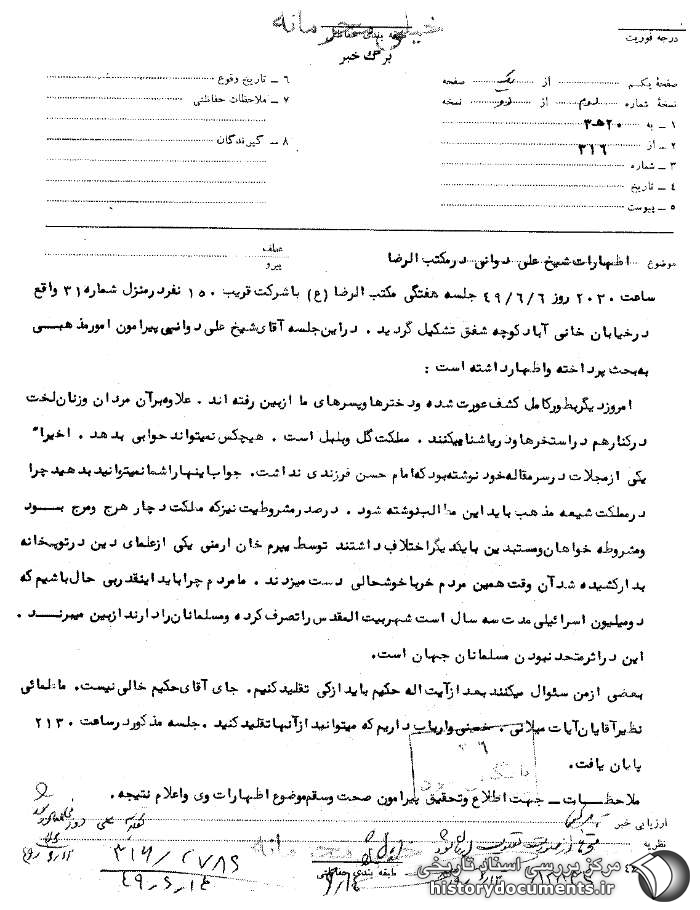 خیلی محرمانه
طبقه بندی حفاظتی
درجه فوریت
برگ خبر
صفحهٔ یکم از یک صفحه
نسخهٔ شماره دوم از دو نسخه
۱ ــ به ۲۰ ه ۳
۲ ــ از ۳۱۶
۳ ــ شماره
۴ ــ تاریخ
۵ ــ پیوست
۶ ــ تاریخ وقوع
۷ ــ ملاحظات حفاظتی
۸ ــ گیرندگان
موضوع اظهارات شیخ علی دوانی در مکتب الرضا
عطف
پیرو
ساعت ۲۰۳۰ روز ۴۹/۶/۶ جلسه هفتگی مکتب الرضا (ع) با شرکت قریب ۱۵۰ نفر در منزل شماره ۳۱ واقع
در خیابان خانی آباد کوچه شفق تشکیل گردید . در این جلسه آقای شیخ علی دوانی پیرامون امور مذهبـــی
به بحث پرداخته و اظهار داشته است :
امروز دیگر بطور کامل کشف عورت شده و دخترها و پسرهای ما از بین رفته اند . علاوه بر آن مردان و زنان لخت
در کنار هم در استخرها و دریا شنا میکنند . مملکت گل و بلبل است . هیچکس نمیتواند حوابی بدهد . اخیرا"
یکی از مجلات در سر مقاله خود نوشته بود که امام حسن فرزندی نداشت. جواب اینها را شما نمیتوانید بدهید چرا
در مملکت شیعه مذهب باید این مطالب نوشته شود . در صدر مشروطیت نیز که مملکت دچار هرج و مرج بـــود
و مشروطه خواهان و مستبدین با یکدیگر اختلاف داشتند توسط یپرم خان ارمنی یکی از علمای دین در توپخانه
بدار کشیده شد آن وقت همین مردم خر با خوشحالی دست میزدند . ما مردم چرا باید اینقدر بی حال باشیم که
دو میلیون اسرائیلی مدت سه سال است شهر بیت المقدس را تصرف کرده و مسلمانان را دارند از بین میبرنـــد .
این در اثر متحد نبودن مسلمانان جهان است.
بعضی از من سئوال میکنند بعد از آیت اله حکیم باید از کی تقلید کنیم. جای آقای حکیم خالی نیست. ما علمائی
نظیر آقایان آیات میلانی . خمینی و اریاب داریم که میتوانید از آنها تقلید کنید . جلسه مذکور در ساعت ۲۱۳۰
پایان یافت.
ملاحظـــات ــ جهت اطلاع و تحقیق پیرامون صحت و سقم موضوع اظهارات وی و اعلام نتیجه .
ارزیابی خبر
نظریه
۳۱۶/
۴۹،۶،۱۴
طبقه بندی حفاظتی
مرکز بررسی اسناد تاریخی
historydocuments.ir